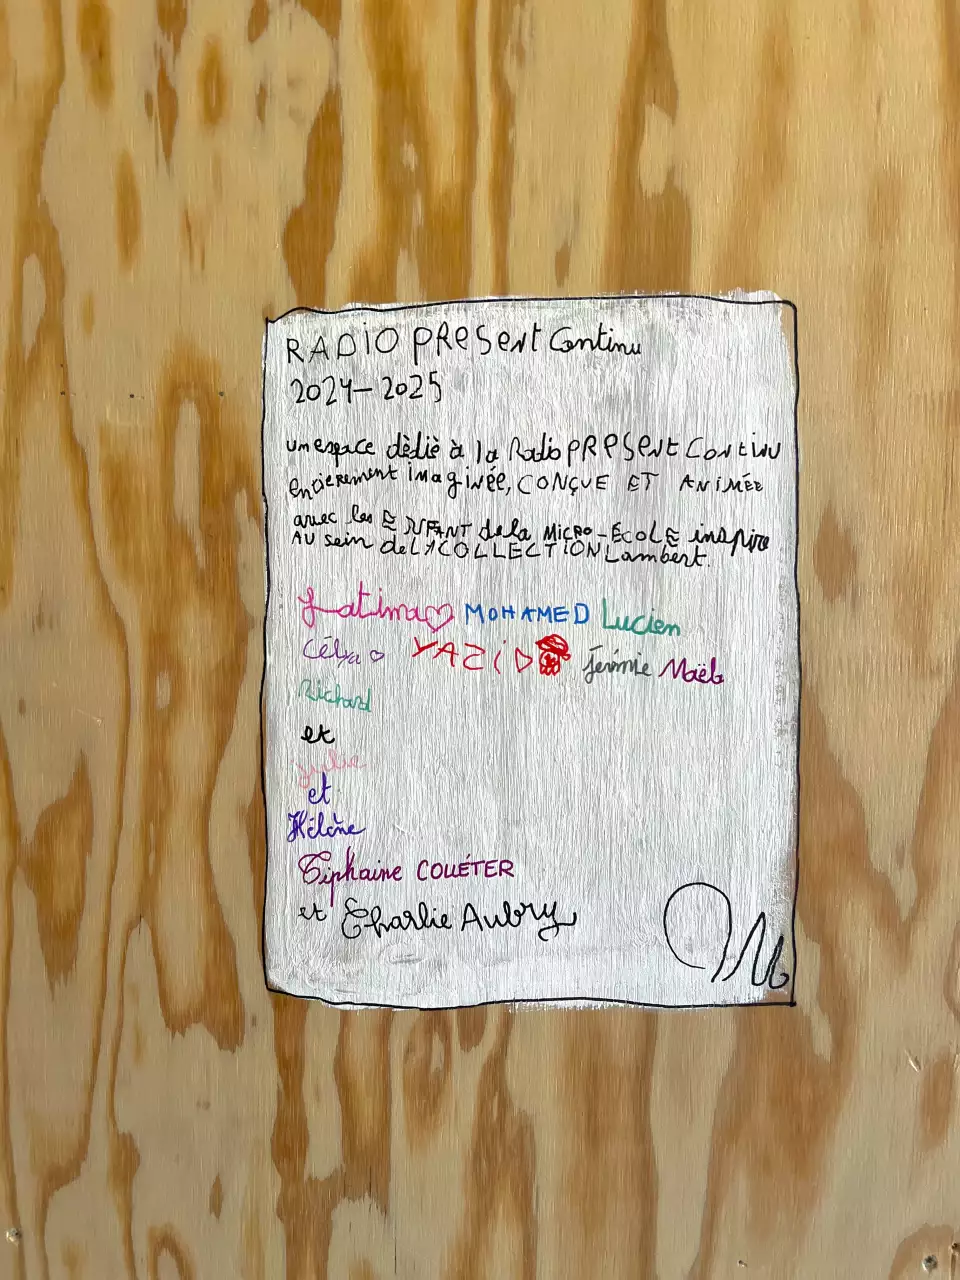 RADiO PReSeNt Continu
2024-2025
un espace dèdiè à la Radio PReSeNt Continu
entierement imaginée, CONÇUE ET ANiMÉE
avec les ENFANT de la MICRO-ÉCOLE inspire
AU sein de LA COLLECTION Lambert.
Fatima♡ MOHAMED Lucien
Célya♡ YAZiD Jérémie Maëla
Richard
et
Julie
et
Hélène
Tiphaine COUÉTER
et Charlie Aubry